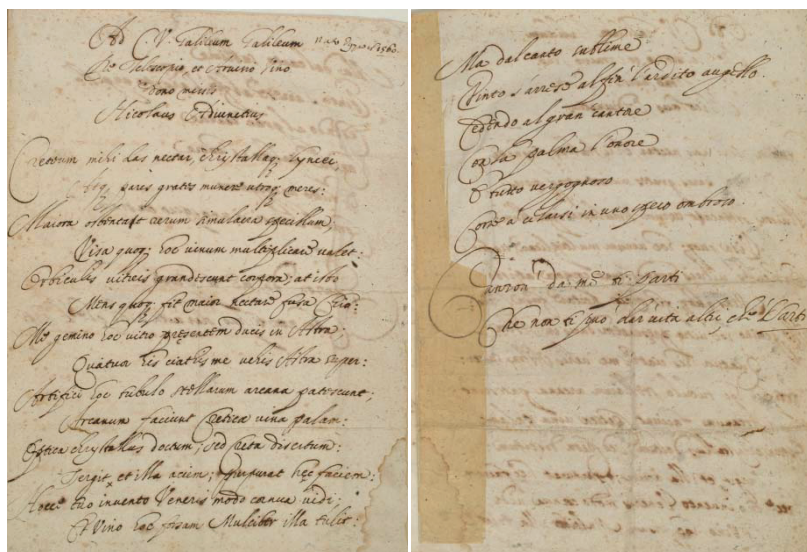 Ad C. V. Galileum Galileum
Pro Telescopio, et Vino
dono missis
Nicolaus
Creteum mihi das nectar, Lyncei
Atq; pares grates munere utroq; meres:
Maiora rerum simulacra specillum,
Visa quoq; hoc vinum multiplicare valet:
Orbiculis vitreis grandescunt corpora; at isto
Mens quoq; fit maior nectare fusa
Me gemino hoc vitro praesentem ducis in Astra:
Quatuor his ciathis me vehis Astra super:
Artifici hoc tubulo stellarum arcana patescunt;
Arcanum faciunt Cretica vina palam:
Optica doctum; sed Creta disertum:
Tergit et illa aciem; purpurat hęc faciem:
Hocce tuo invento Veneris modo cornua vidi;
Et Vino hoc Mulciber illa tulit:
Ma dal canto sublime
Vinto s'arrese al fin l'ardito augello.
Cedendo al gran cantore
Con la palma l'onore
E tutto vergognoso
Corse a celarsi in uno speco ombroso.
Canzon da me ti parti
Che non ti può dar vita altri, che l'arti